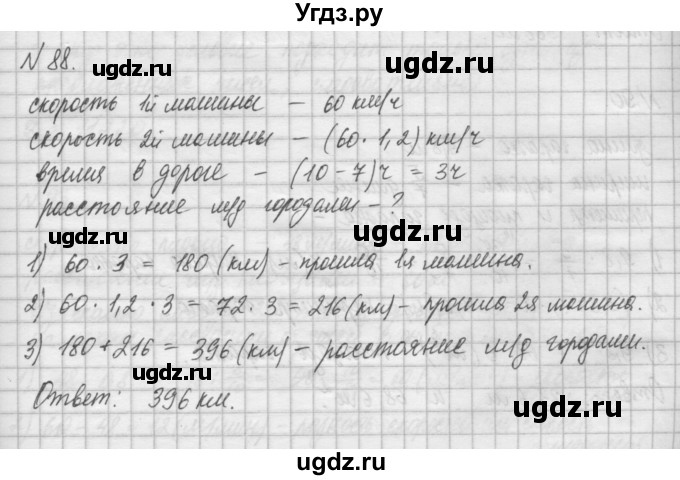 Угдз.ру
N 88.
ugdz.ru ugdz.ru
скорость 1й машины – 60 км/ч
скорость 2й машины – (60 · 1,2) км/ч
ugdz.ru
время в дороге – (10 – 7) ч = 3ч
расстояние м/д городами – ?
ugdz.ru ugdz.ru
1) 60 · 3 = 180 (км) – прошла 1я машина.
2) 60 · 1,2 · 3 = 72 · 3 = 216 (км) – прошла 2я машина.
ugdz.ru
3) 180 + 216 = 396 (км) – расстояние м/д городами.
ugdz.ru
Ответ: 396 км.
ugdz.ru
Угдз.ру
ugdz.ru